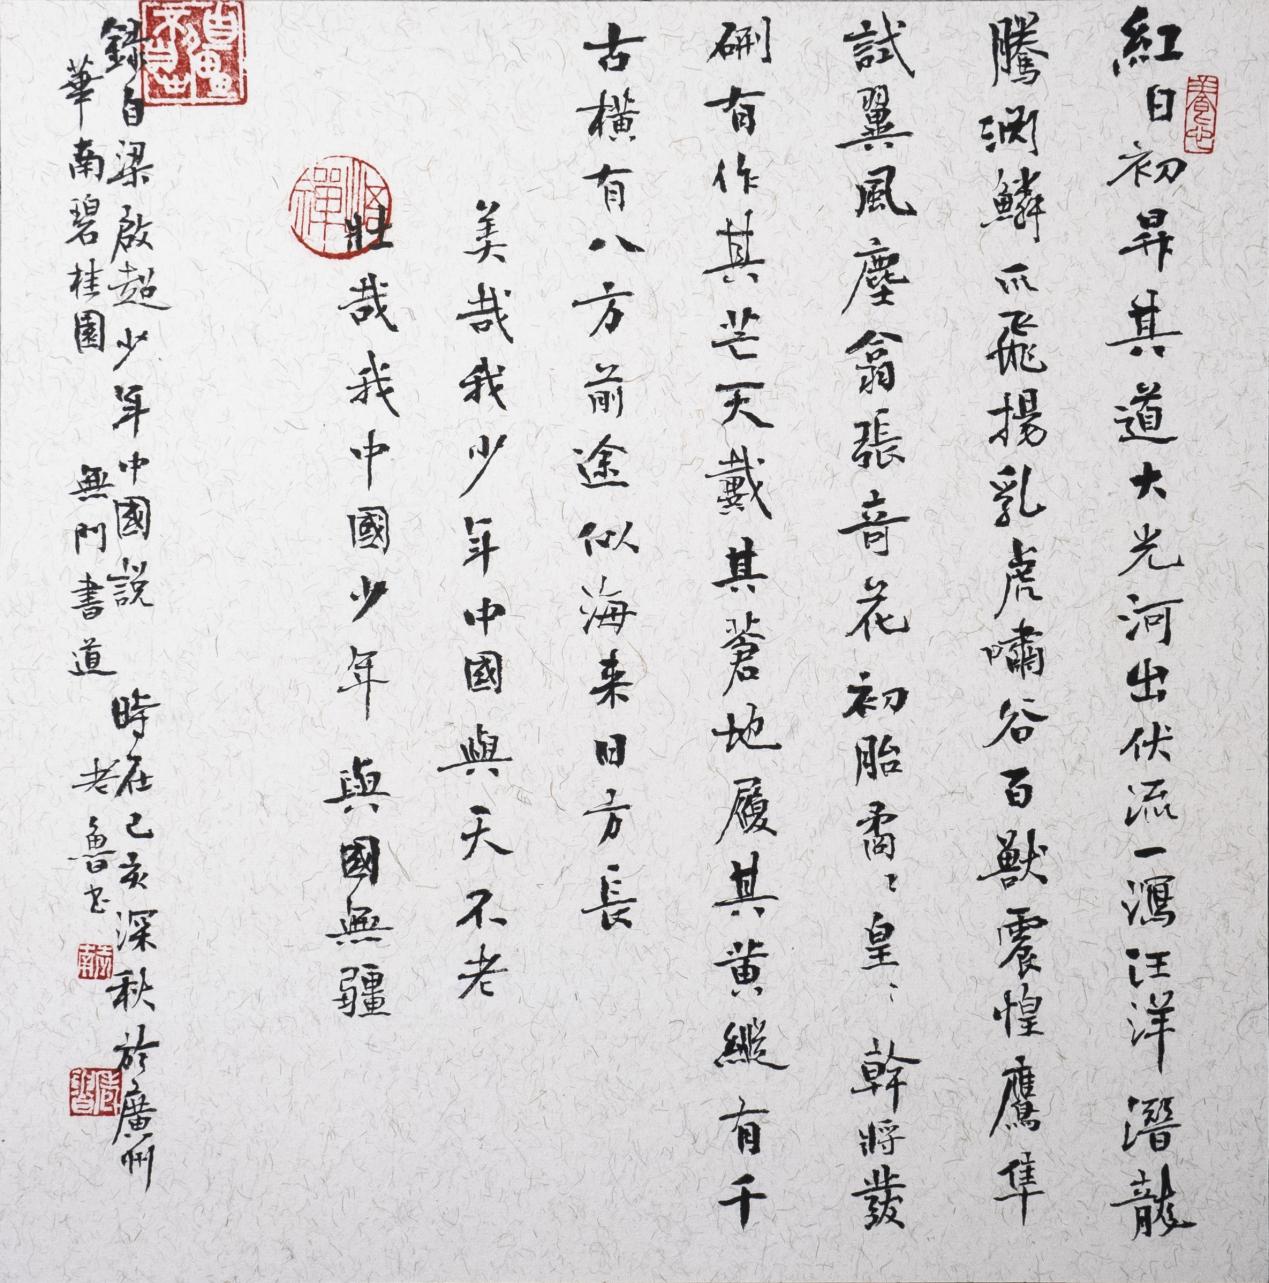 紅日初昇其道大光河出伏流一瀉汪洋潛龍
騰渊鱗爪飛揚乳虎嘯谷百獸震惶鷹隼
試翼風塵翕張奇花初胎矞々皇々幹將發
硎有作其芒天戴其蒼地履其黄縱有千
古橫有八方前途似海来日方長
美哉我少年中國與天不老
壯哉我中國少年與國無疆
錄自梁啟超少年中國説 時在己亥深秋於廣州
華南碧桂園 無門書道 老魯书